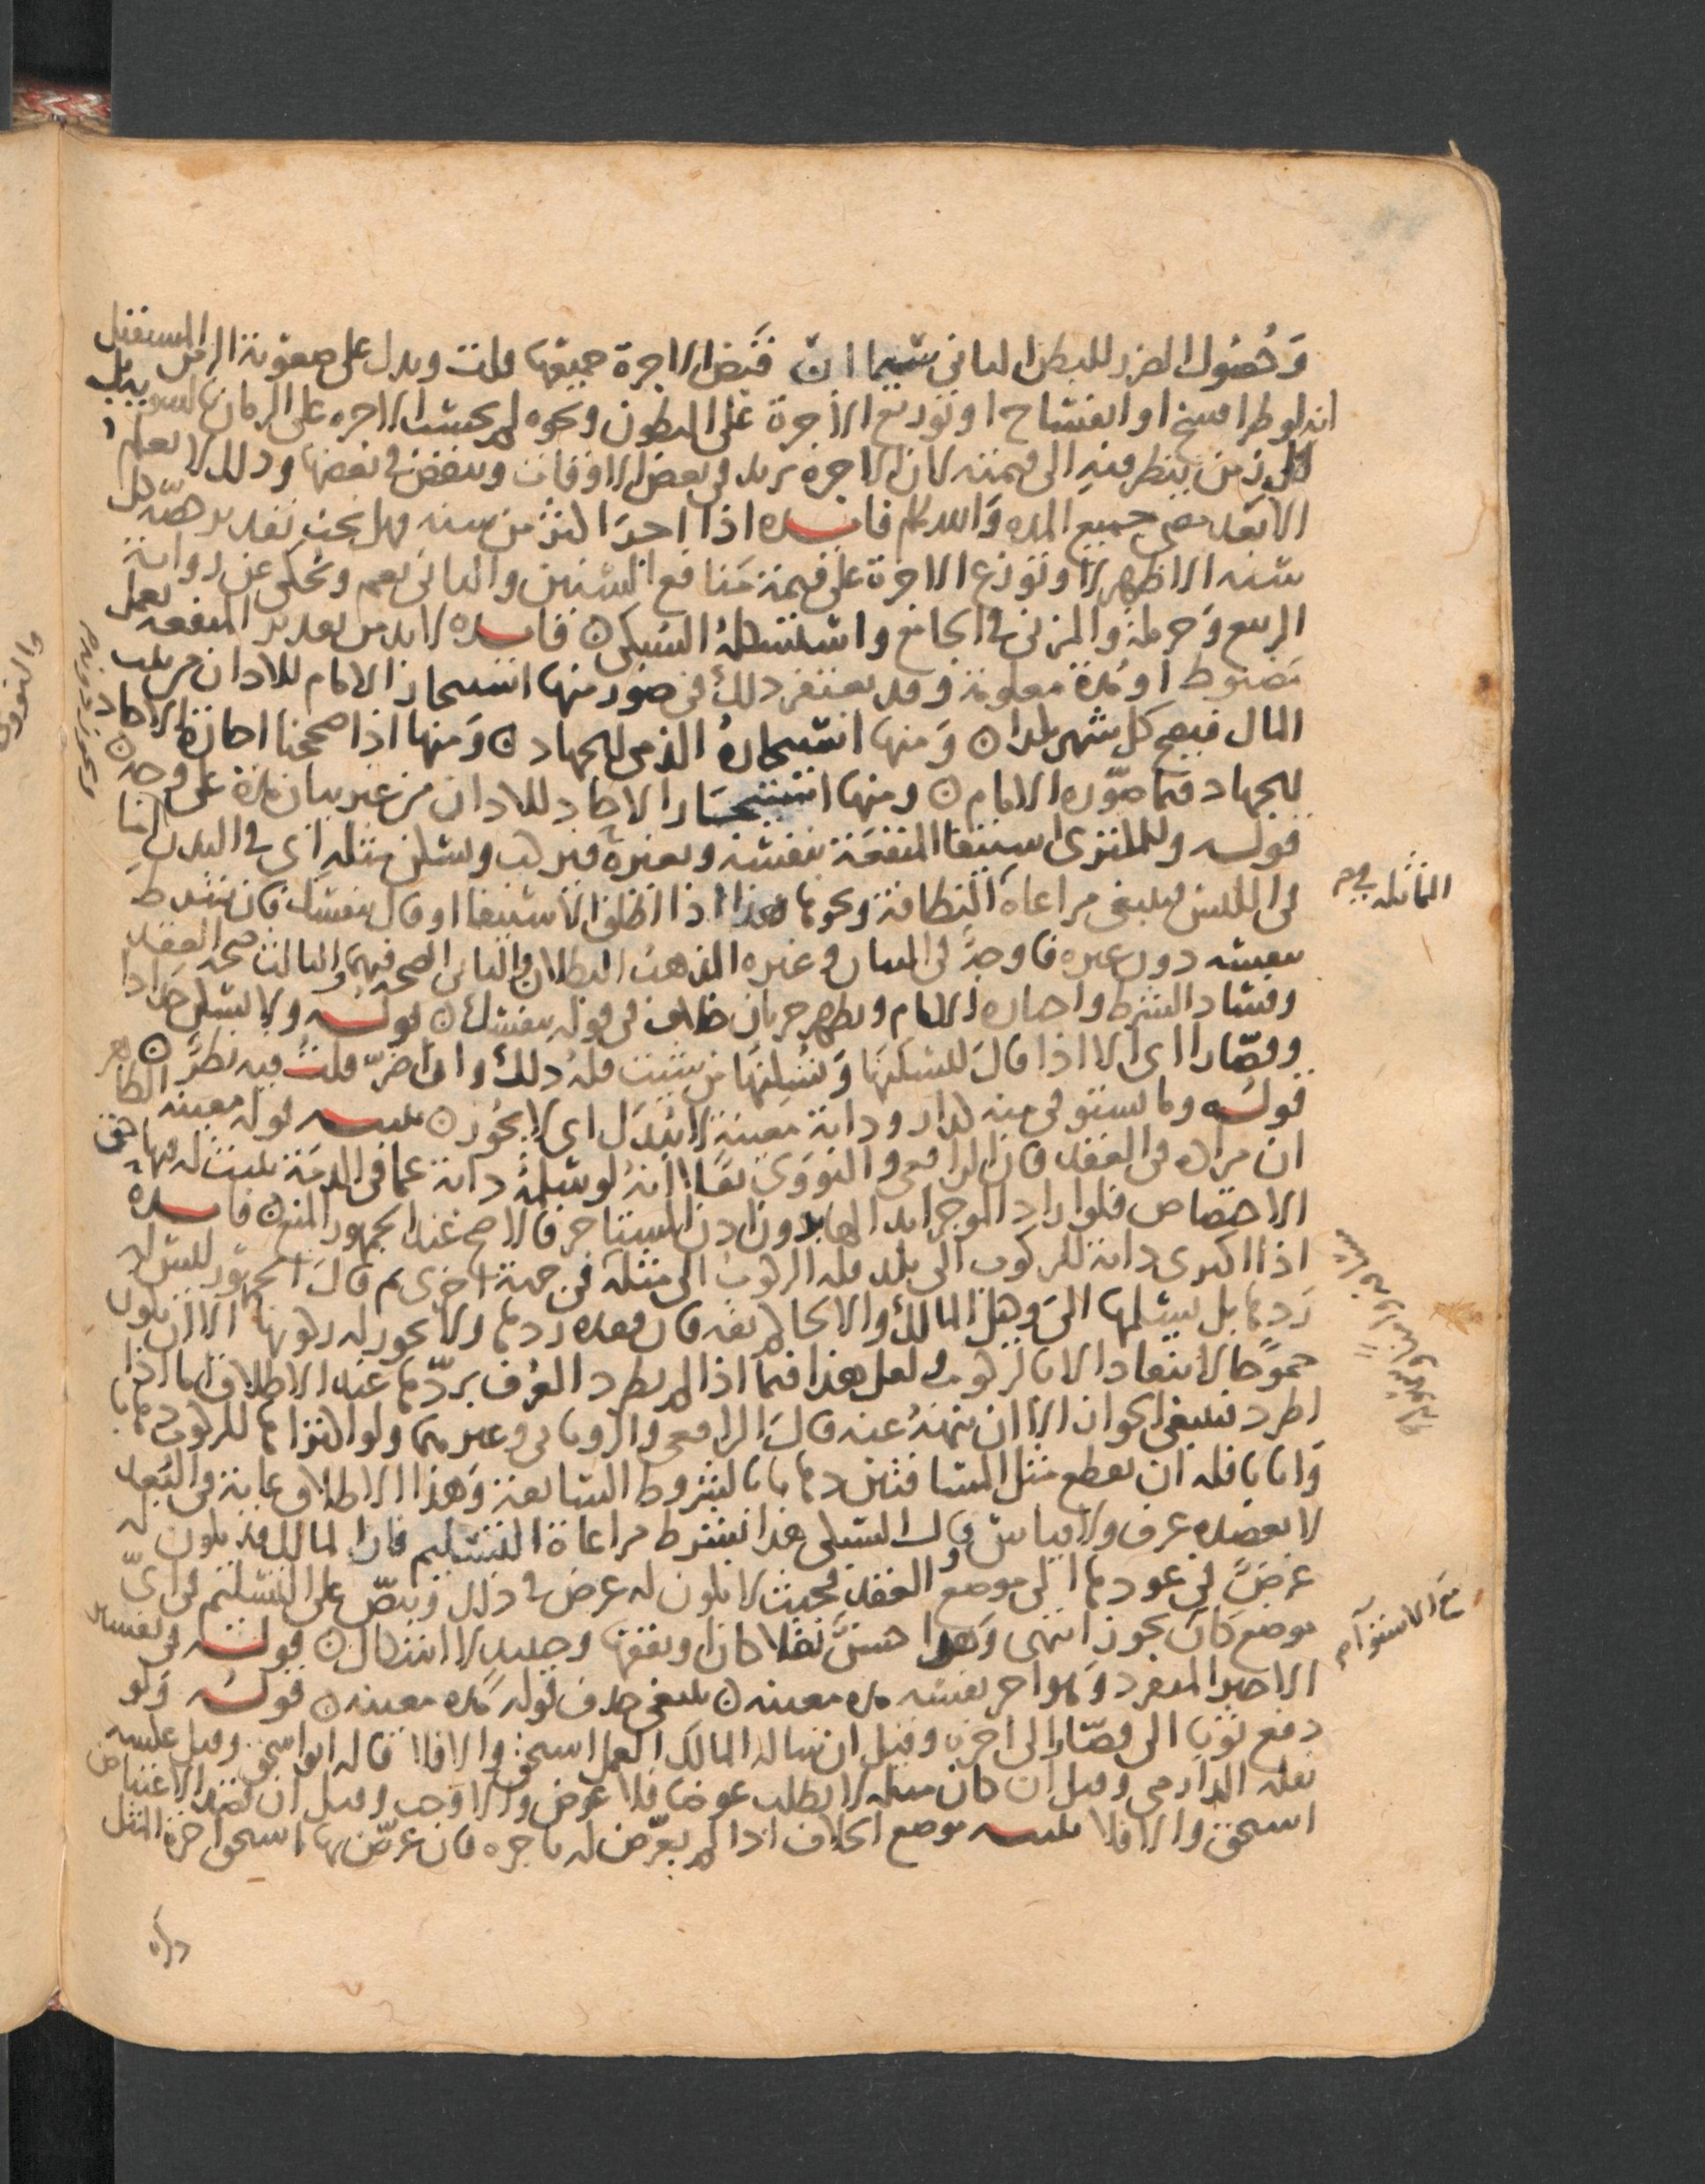 وحصول الضرر للبطن الثاني سيما ان قبض الاجرة جميعها قلت ويدل على صعوبة الزمن المستقبل
انه لو طرا فسخ او انفساخ او توزيع الاجرة على البطون ونحوه لم يحسب الاجره على الزمان بالسويه بل
كل زمن ينظر فيه الى قيمته لان الاجرة تزيد في بعض الاوقات وينقص في بعضها وذلك لا يعلم
الا بعد مضي جميع المده والله اعلم فايده اذا اجر اكثر من سنه فهل يجب تقدير حصة كل
سنه الاظهر لا وتوزع الاجرة على قيمة منافع السنين والثاني نعم وحكي عن رواية
الربيع وحرملة والمزني في الجامع واستشكله السبكي فايده لا بد من تقدير المنفعه بعمل
مضبوط او مدة معلومة وقد يغتفر ذلك في صور منها استيجار الامام للاذان من بيت
المال فيصح كل شهر بكذا ومنها استيجاره الذمي للجهاد ومنها اذا صححنا اجارة الاحاد
للجهاد فكما صوره الامام ومنها استيجار الاحاد للاذان من غير بيان مدة على وجه
قوله وللمكتري استيفا المنفعة بنفسه وبغيره فيركب ويسكن مثله اي في البدن اما
في اللبس فينبغي مراعاة النظافة ونحوها هذا اذا اطلق الاستيفا او قال بنفسك فان شرط
بنفسه دون غيره فاوجه في البيان وغيره المذهب البطلان والثاني الصحه فيهما والثالث صحه العقد
وفساد الشرط واختاره الامام ويظهر جريان خلاف في قوله بنفسك قوله ولا يسكن حدادا
وقصارا اي الا اذا قال لتسكنها وتسكنها من شيت فله ذلك وان اضر قلت فيه نظر
قوله وما يستوفى منه كدار ودابة معينة لا يبدل اي لا يجوز تنبيه قوله معينه الظاهر
ان مراده في العقد فان الرافعي والنووي نقلا انه لو سلمه دابة عما في الذمة يثبت له فيها حق
الاختصاص فلو اراد الموجر ابدالها بدون اذن المستاجر فالاصح عند الجمهور المنع فايده
اذا اكترى دابة للركوب الى بلد فله الركوب الى مثله في جهة اخرى ثم قال الجمهور ليس له
ردها بل يسلمها الى وكيل المالك والا الحاكم ثقه فان فقده ردها ولا يجوز له ركوبها الا ان يكون
جموحا لا ينقاد الا بالركوب ولعل هذا فيما اذا لم يطرد العرف بردها عند الاطلاق اما اذا
اطرد فينبغي الجواز الا ان ينهه عنه قال الرافعي والروياني وغيرهما ولو اكتراها للركوب ذهابا
وايابا فله ان يقطع مثل المسافتين ذهابا بالشروط السابقة وهذا الاطلاق غاية في البعد
لا يعضده عرف ولا قياس قال السبكي هذا بشرط مراعاة التسليم فان المالك قد يكون له
غرض في عودها الى موضع العقد فحيث لا يكون له غرض في ذلك ونص على التسليم في اي
موضع كان يجوز انتهى وهذا حسن نقلا كان او تفقها وحينيذ لا اشكال قوله في تفسير
الاجير المنفرد وهو اجر نفسه مده معينه ينبغي حذف قوله مده معينه قوله ولو
دفع ثوبا الى قصار الى اخره وقيل ان ساله المالك العمل استحق والا فلا قاله ابو اسحق وقيل عكسه
نقله الدارمي وقيل ان كان مثله لا يطلب عوضا فلا عوض والا وجب وقيل ان قصد الاعتياض
استحق والا فلا تنبيه موضع الخلاف اذا لم يعرض له باجره فان عرض بها استحق اجرة المثل
المماثله في
مع الاستوا